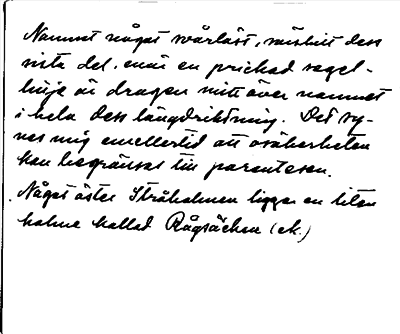 Namnet något svårläst, särskilt dess
sista del, enär en prickad segel-
linje är dragen mitt över namnet
i hela dess längdriktning. Det sy-
nes mig emellertid att osäkerheten
kan begränsas till parentesen.
Något öster Stråholmen ligger en liten
holme kallad Rågsäcken (ek.)